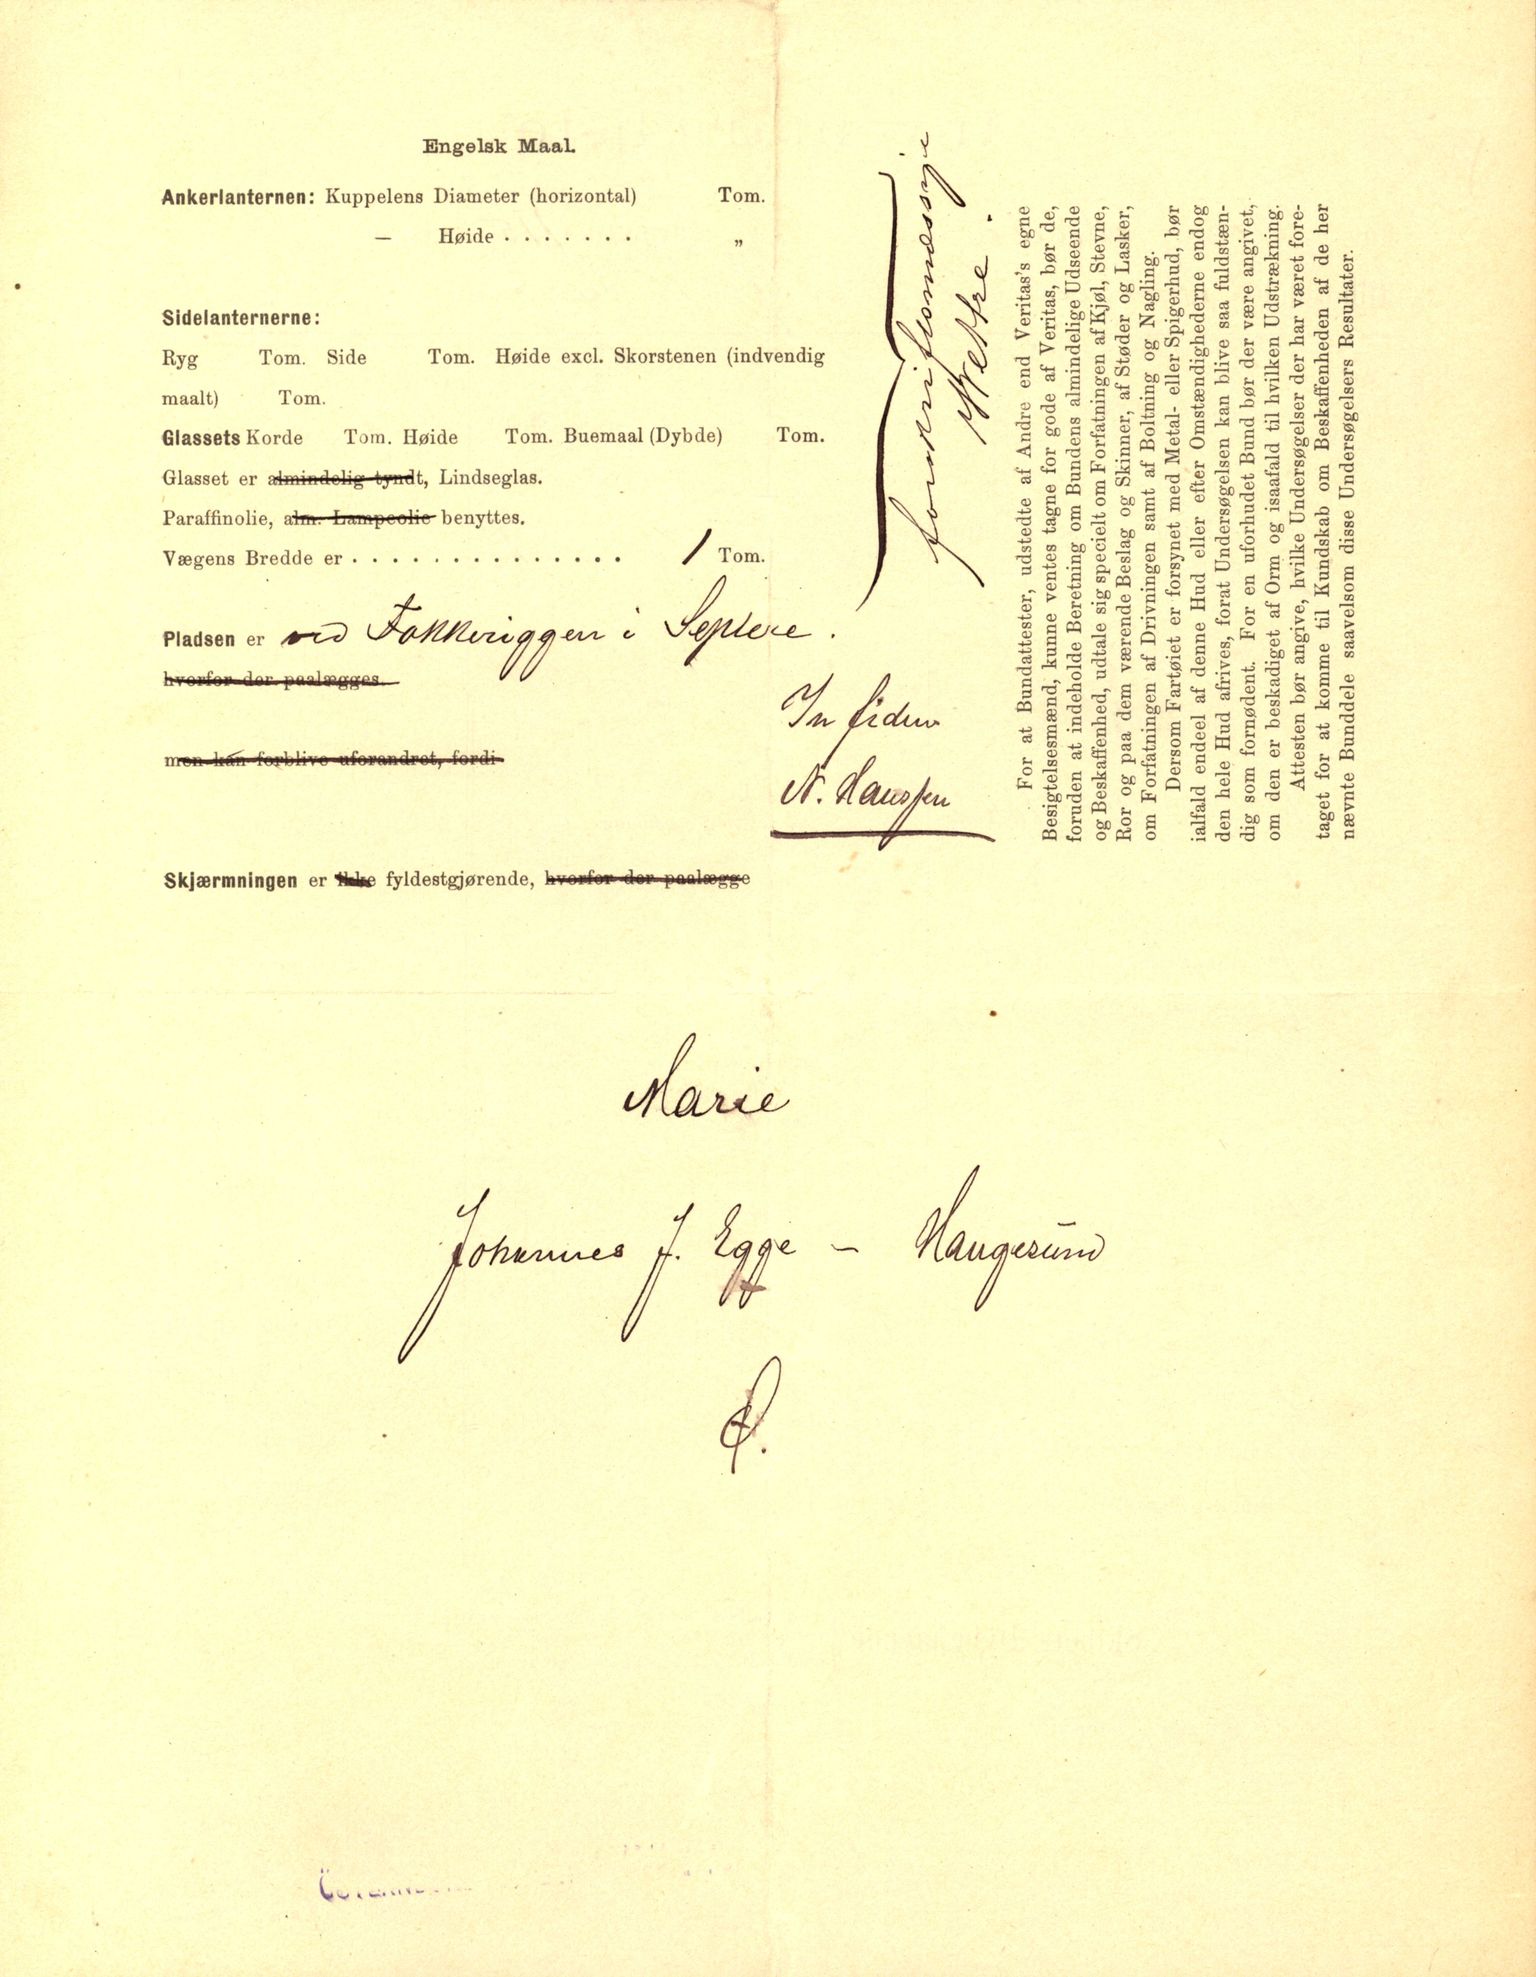 Engelsk Maal.
Ankerlanternen: Kuppelens Diameter (horizontal) Tom.
— Høide . . . . . . . „
Sidelanternerne:
Ryg Tom. Side Tom. Høide excl. Skorstenen (indvendig
maalt) Tom.
Glassets Korde Tom. Høide Tom. Buemaal (Dybde) Tom.
Glasset er almindelig tyndt, Lindseglas.
Paraffinolie, alm. Lampeolie benyttes.
Vægens Bredde er . . . . . . . . . . . . . . 1 Tom.
Pladsen er ved Fokkeriggen i
hvorfor der paalægges
men kan forblive uforandret, fordi
Skjærmningen er ikke fyldestgjørende, hvorfor der paalægge
In fidem
N. Hanssen
For at Bundattester, udstedte af Andre end Veritas's egne
Besigtelsesmænd, kunne ventes tagne for gode af Veritas, bør de,
foruden at indeholde Beretning om Bundens almindelige Udseende
og Beskaffenhed, udtale sig specielt om Forfatningen af Kjøl, Stevne,
Ror og paa dem værende Beslag og Skinner, af Støder og Lasker,
om Forfatningen af Drivningen samt af Boltning og Nagling.
Dersom Fartøiet er forsynet med Metal- eller Spigerhud, bør
ialfald endeel af denne Hud eller efter Omstændighederne endog
den hele Hud afrives, forat Undersøgelsen kan blive saa fuldstæn-
dig som fornødent. For en uforhudet Bund bør der være angivet,
om den er beskadiget af Orm og isaafald til hvilken Udstrækning.
Attesten bør angive, hvilke Undersøgelser der har været fore-
taget for at komme til Kundskab om Beskaffenheden af de her
nævnte Bunddele saavelsom disse Undersøgelsers Resultater.
Marie
Johannes J. Egge – Haugesund